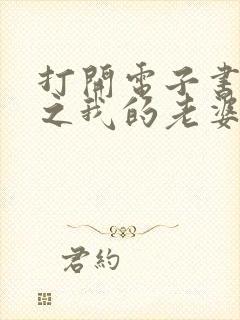 打開電子書
之我的老婆
君約